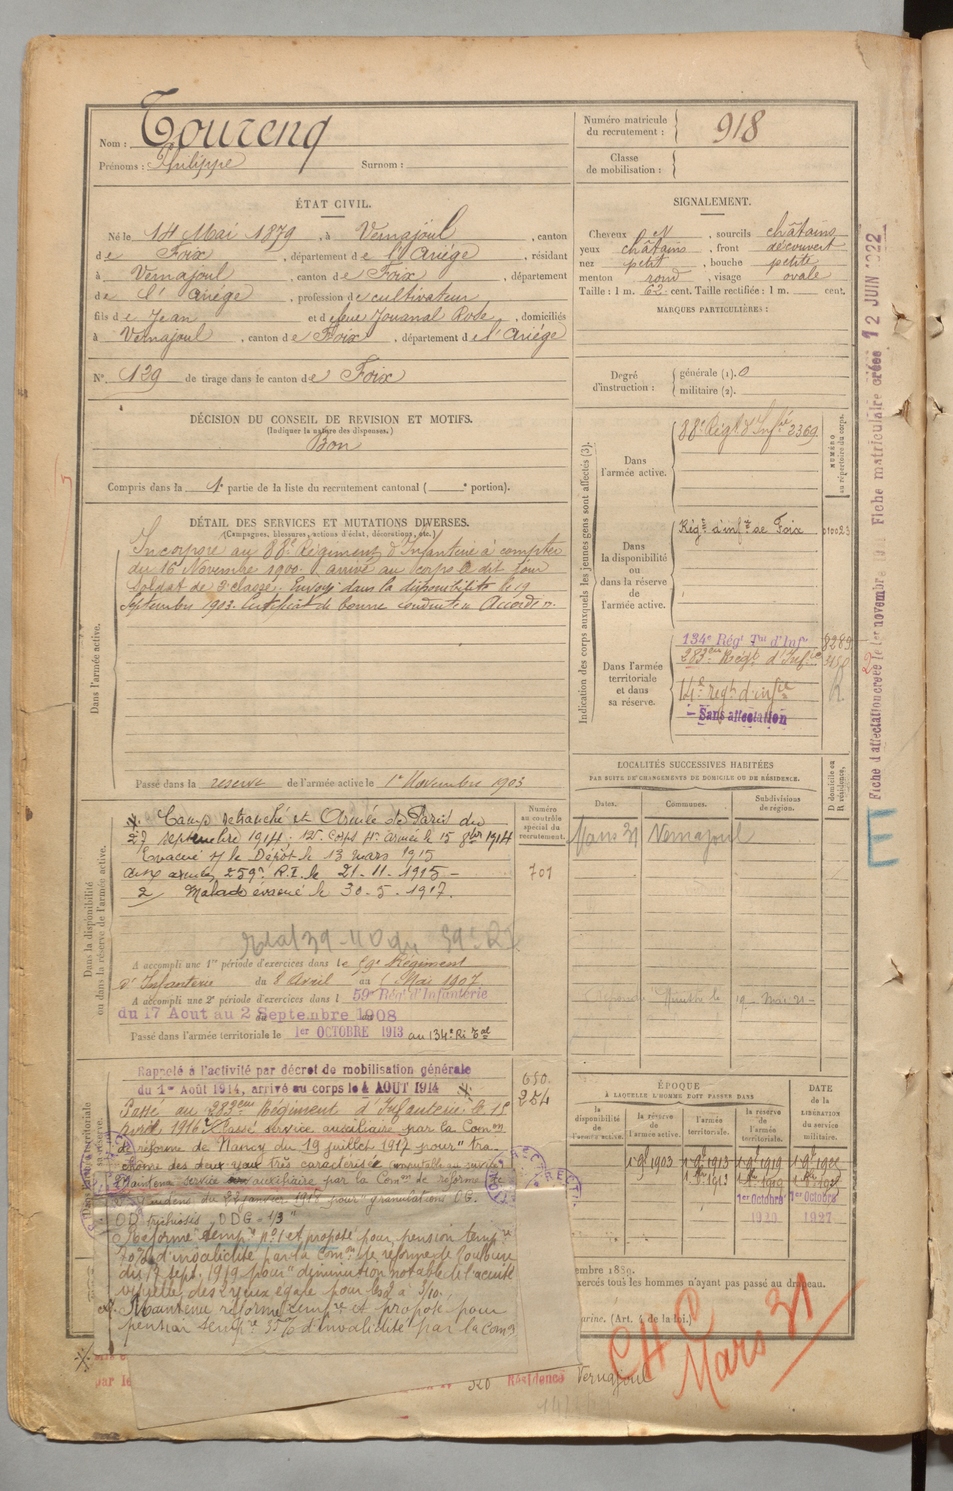 Nom : Tourenq
Prénoms : Philippe Surnom :
Numéro matricule du recrutement : 918
Classe de mobilisation :
ÉTAT CIVIL.
Né le 14 Mai 1879, à Vernajoul, canton
de Foix, département de l'Ariège, résidant
à Vernajoul, canton de Foix, département
de l'Ariège, profession de cultivateur
fils de Jean et de feue Jouanal Rose, domiciliés
à Vernajoul, canton de Foix, département de l'Ariège
N° 129 de tirage dans le canton de Foix
SIGNALEMENT.
Cheveux N, sourcils châtains
yeux châtains, front découvert
nez petit, bouche petite
menton rond, visage ovale
Taille : 1 m. 62 cent. Taille rectifiée : 1 m. cent.
MARQUES PARTICULIÈRES :
Degré d'instruction : générale (1). 0
militaire (2).
DÉCISION DU CONSEIL DE REVISION ET MOTIFS.
(Indiquer la nature des dispenses.)
Bon
Compris dans la 1e partie de la liste du recrutement cantonal ( e portion).
DÉTAIL DES SERVICES ET MUTATIONS DIVERSES.
(Campagnes, blessures, actions d'éclat, décorations, etc.)
Dans l'armée active.
Incorporé au 88e Régiment d'Infanterie à compter
du 16 Novembre 1900. arrivé au corps le dit jour
Soldat de 2e classe. Envoyé dans la disponibilité le 19
Septembre 1903. Certificat de bonne conduite "Accordé".
Passé dans la reserve de l'armée active le 1er Novembre 1903
Indication des corps auxquels les jeunes gens sont affectés (3).
NUMÉRO au répertoire du corps.
Dans l'armée active.
88e Régt d'Infie 2369
Dans la disponibilité ou dans la réserve de l'armée active.
Régt d'infie de Foix 01002
Dans l'armée territoriale et dans sa réserve.
134e Régt Tal d'Infie 8289
283eme Régt d'Infie
14e regt d'infie R
Sans affectation
Fiche matriculaire créée 12 JUIN 1922
LOCALITÉS SUCCESSIVES HABITÉES
PAR SUITE DE CHANGEMENTS DE DOMICILE OU DE RÉSIDENCE.
Dates. Communes. Subdivisions de région. D domicile ou R résidence.
Mars 31 Vernajoul
Dans la disponibilité ou dans la réserve de l'armée active.
Numéro au contrôle spécial du recrutement.
701
Camp retranché et Armée de Paris du
27 septembre 1914. 12e Corps 4e armée le 15 8bre 1914
Evacué s/ le Dépôt le 13 mars 1915
aux armées 259e R.I. le 21-11-1915 -
2 Malade évacué le 30-5-1917.
A accompli une 1re période d'exercices dans le 59e Régiment
d'Infanterie du 8 Avril au 6 Mai 1907.
A accompli une 2e période d'exercices dans l 59e Rég d'Infanterie
du 17 Aout au 2 Septembre 1908
Passé dans l'armée territoriale le 1er OCTOBRE 1913 au 134e Ri Tal
Rappelé à l'activité par décret de mobilisation générale
du 1er Août 1914, arrivé au corps le 4 AOUT 1914
650.
254
Passé au 283eme Régiment d'Infanterie le 15
Avril 1916. Passé service auxiliaire par la Comon
de réforme de Nancy du 19 juillet 1917 pour "tra-
chome des deux yeux très caractérisé imputable au service
Maintenu service auxiliaire par la Comon de reforme de
du 22 janvier 1918 pour granulations OG.
OD trichiosis ODG = 1/3"
Réformé tempre n°1 et proposé pour pension tempre
d'invalidité par la Comon de réforme de Toulouse
du 17 sept. 1919 pour "diminution notable de l'acuité
visuelle des 2 yeux égale pour
Maintenu reformé tempre et proposé pour
pension tempre 35% d'invalidité par la Comon
ÉPOQUE
À LAQUELLE L'HOMME DOIT PASSER DANS
la disponibilité de l'armée active. la réserve de l'armée active. l'armée territoriale. la réserve de l'armée territoriale.
DATE de la LIBÉRATION du service militaire.
1er 9bre 1903 1er 9bre 1913 1er 9bre 1919
1er Octobre 1er Octobre
1920 1927
embre 1889.
exercés tous les hommes n'ayant pas passé au drapeau.
arine. (Art. 4 de la loi.)
CH C
Mars 31
Résidence Vernajoul
E